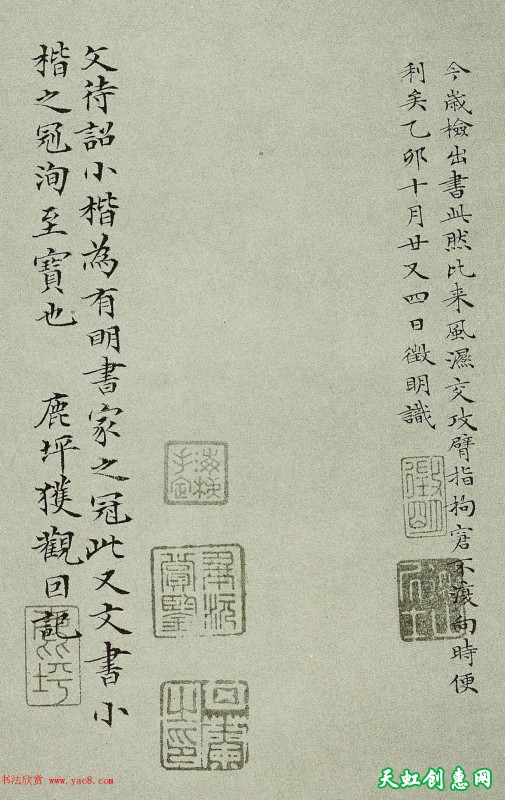 今歲檢出書此然比来風濕交攻臂指拘窘不復向時便
利矣乙卯十月廿又四日徵明識
徵明
文待詔小楷為有明書家之冠此又文書小
楷之冠洵至寶也 鹿坪獲觀因記
鹿坪
书法欣赏 www.yac8.com
天虹创惠网